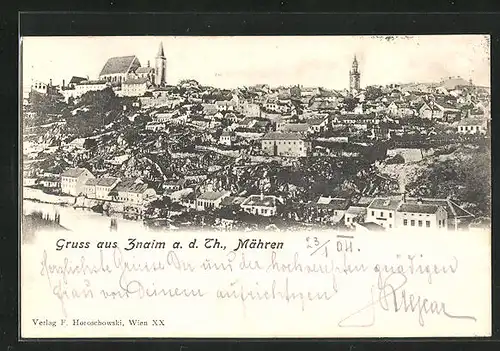 Gruss aus Znaim a. d. Th., Mähren
Herzlichste Grüsse Dir und der hochverehrten gnädigen
Frau von Deinem aufrichtigen
Verlag F. Horoschowski, Wien XX